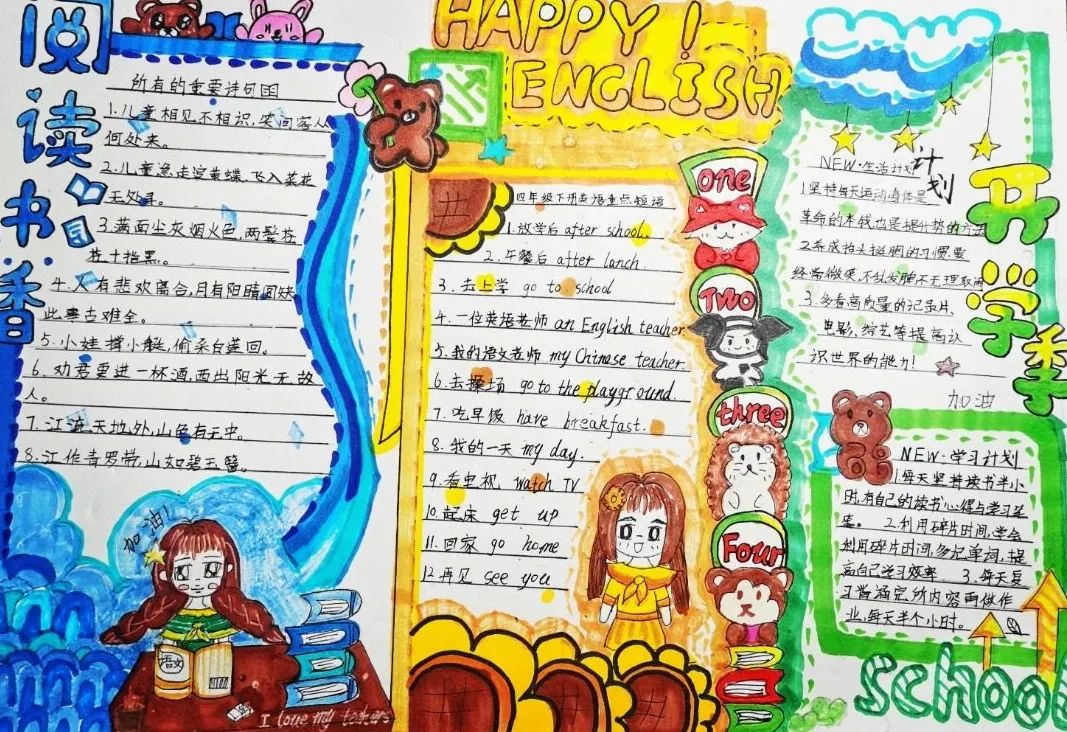 阅读书香
所有的重要诗句
1.儿童相见不相识,笑问客从
何处来。
2.儿童急走追黄蝶,飞入菜花
无处寻。
3.满面尘灰烟火色,两鬓苍
苍十指黑。
4.人有悲欢离合,月有阴晴圆缺
此事古难全。
5.小娃撑小艇,偷采白莲回。
6.劝君更进一杯酒,西出阳光无故
人。
7.江流天地外,山色有无中。
8.江作青罗带,山如碧玉簪。
加油!
语文
I love my teachers
HAPPY!
ENGLISH
四年级下册英语重点短语
1.放学后 after school.
2.午餐后 after lanch.
3.去上学 go to school
4.一位英语老师 an English teacher
5.我的语文老师 my Chinese teacher.
6.去操场 go to the playground.
7.吃早饭 have breakfast.
8.我的一天 my day.
9.看电视 watch TV
10.起床 get up
11.回家 go home
12.再见 see you
one
Two
three
Four
开学季
NEW·生活计划
计划
1.坚持每天运动,身体是
革命的本钱也是提升势的方法
2.养成抬头挺胸的习惯.要
经常微笑,不乱发脾不无理取闹
3.多看高质量的记录片.
电影,综艺等提高认
识世界的能力!
加油
NEW·学习计划
1.每天坚持读书半小
时,有自己的读书心得与学习
2.利用碎片时间,学会
利用碎片时间,多记单词,提
高自己学习效率 3.每天复
习背诵完所内容再做作
业,每天半个小时。
School